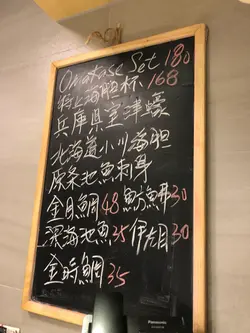 Omakase Set 180
特上海胆杯 168
兵庫県室津蠔
北海道小川海胆
原条池魚刺身
金目鯛 48 魷魚 30
深海池魚 25 伊左目 30
金時鯛 35
Panasonic